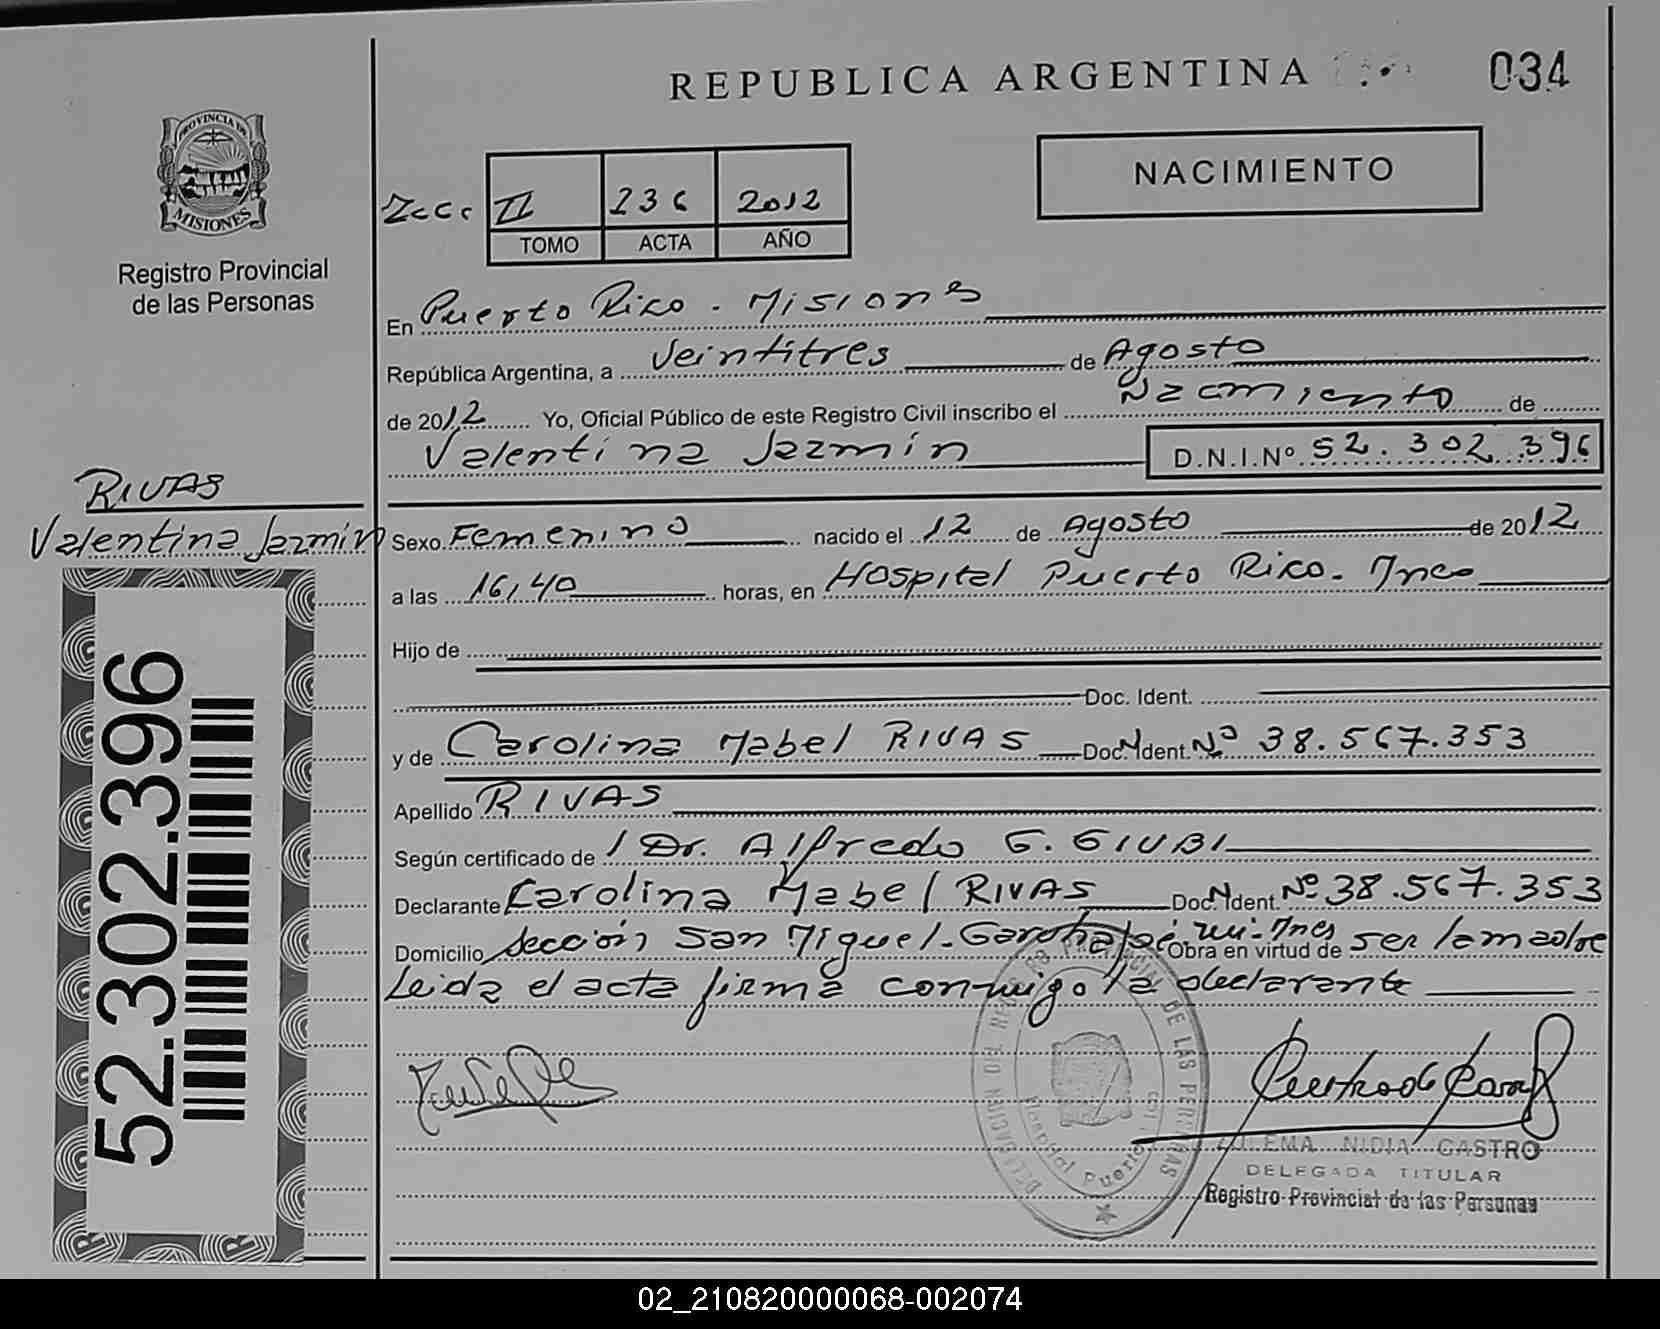 REPUBLICA ARGENTINA
034
PROVINCIA DE
MISIONES
Registro Provincial
de las Personas
NACIMIENTO
II 236 2012
TOMO ACTA AÑO
En Puerto Rico - Misiones
República Argentina, a veintitres de Agosto
de 2012 Yo, Oficial Público de este Registro Civil inscribo el Nacimiento de
Valentina Jazmin D.N.I.Nº 52.302.396
RIVAS
Valentina Jazmin
Sexo Femenino nacido el 12 de Agosto de 2012
a las 16,40 horas, en Hospital Puerto Rico - Mnes
Hijo de
Doc. Ident.
y de Carolina Mabel RIVAS Doc. Ident. Nº 38.567.353
Apellido RIVAS
Según certificado de Dr. Alfredo G. GIUBI
Declarante Carolina Mabel RIVAS Doc. Ident. Nº 38.567.353
Domicilio Sección San Miguel - Garuhapé Mnes Obra en virtud de ser la madre
Leida el acta firma conmigo la declarante
52.302.396
DELEGACION DEL REG. PROVINCIAL DE LAS PERSONAS
Hospital Puerto
ZULEMA NIDIA CASTRO
DELEGADA TITULAR
Registro Provincial de las Personas
02_210820000068-002074